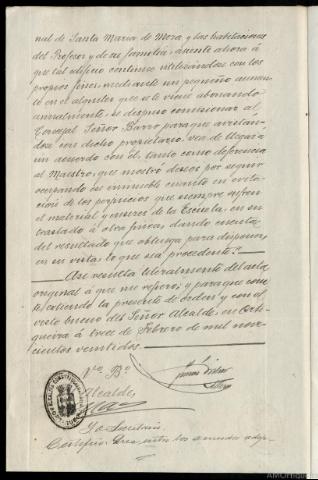 nal de Santa Maria de Mera, y las habitaciones
del Profesor y de su familia, asiente ahora á
que tal edificio continue utilizándose con los
propios fines, mediante un pequeño aumen-
to en el alquiler que se le viene abonando
anualmente, se dispuso comisionar al
Concejal Señor Barro para que avistán-
dose con dicho propietario, vea de llegar á
un acuerdo con él, tanto como deferencia
al Maestro, que mostró deseos por seguir
ocupando ese inmueble cuanto en evita-
ción de los perjuicios que siempre sufren
el material y enseres de la Escuela, en su
traslado á otra finca; dando cuenta
del resultado que obtenga para disponer,
en su vista, lo que sea procedente."
Así resulta literalmente del acta
original á que me refiero; y para que cons-
te, extiendo la presente de orden y con el
visto bueno del Señor Alcalde, en Orti-
gueira á trece de Febrero de mil nove-
cientos veintidos.
Vº Bº
Alcalde,
Yo Secretario
Certifico: